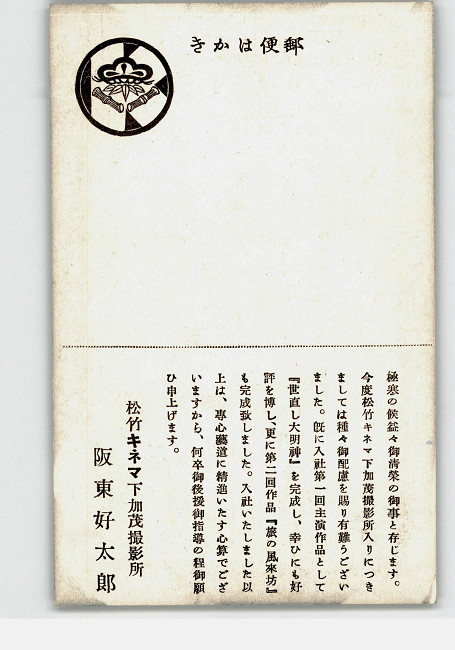 きかは便郵
極寒の候益々御清榮の御事と存じます。
今度松竹キネマ下加茂撮影所入りにつき
ましては種々御配慮を賜り有難うござい
ました。既に入社第一回主演作品として
『世直し大明神』を完成し、幸ひにも好
評を博し、更に第二回作品『旅の風來坊』
も完成致しました。入社いたしました以
上は、專心藝道に精進いたす心算でござ
いますから、何卒御後援御指導の程御願
ひ申上げます。
松竹キネマ下加茂撮影所
阪東好太郎